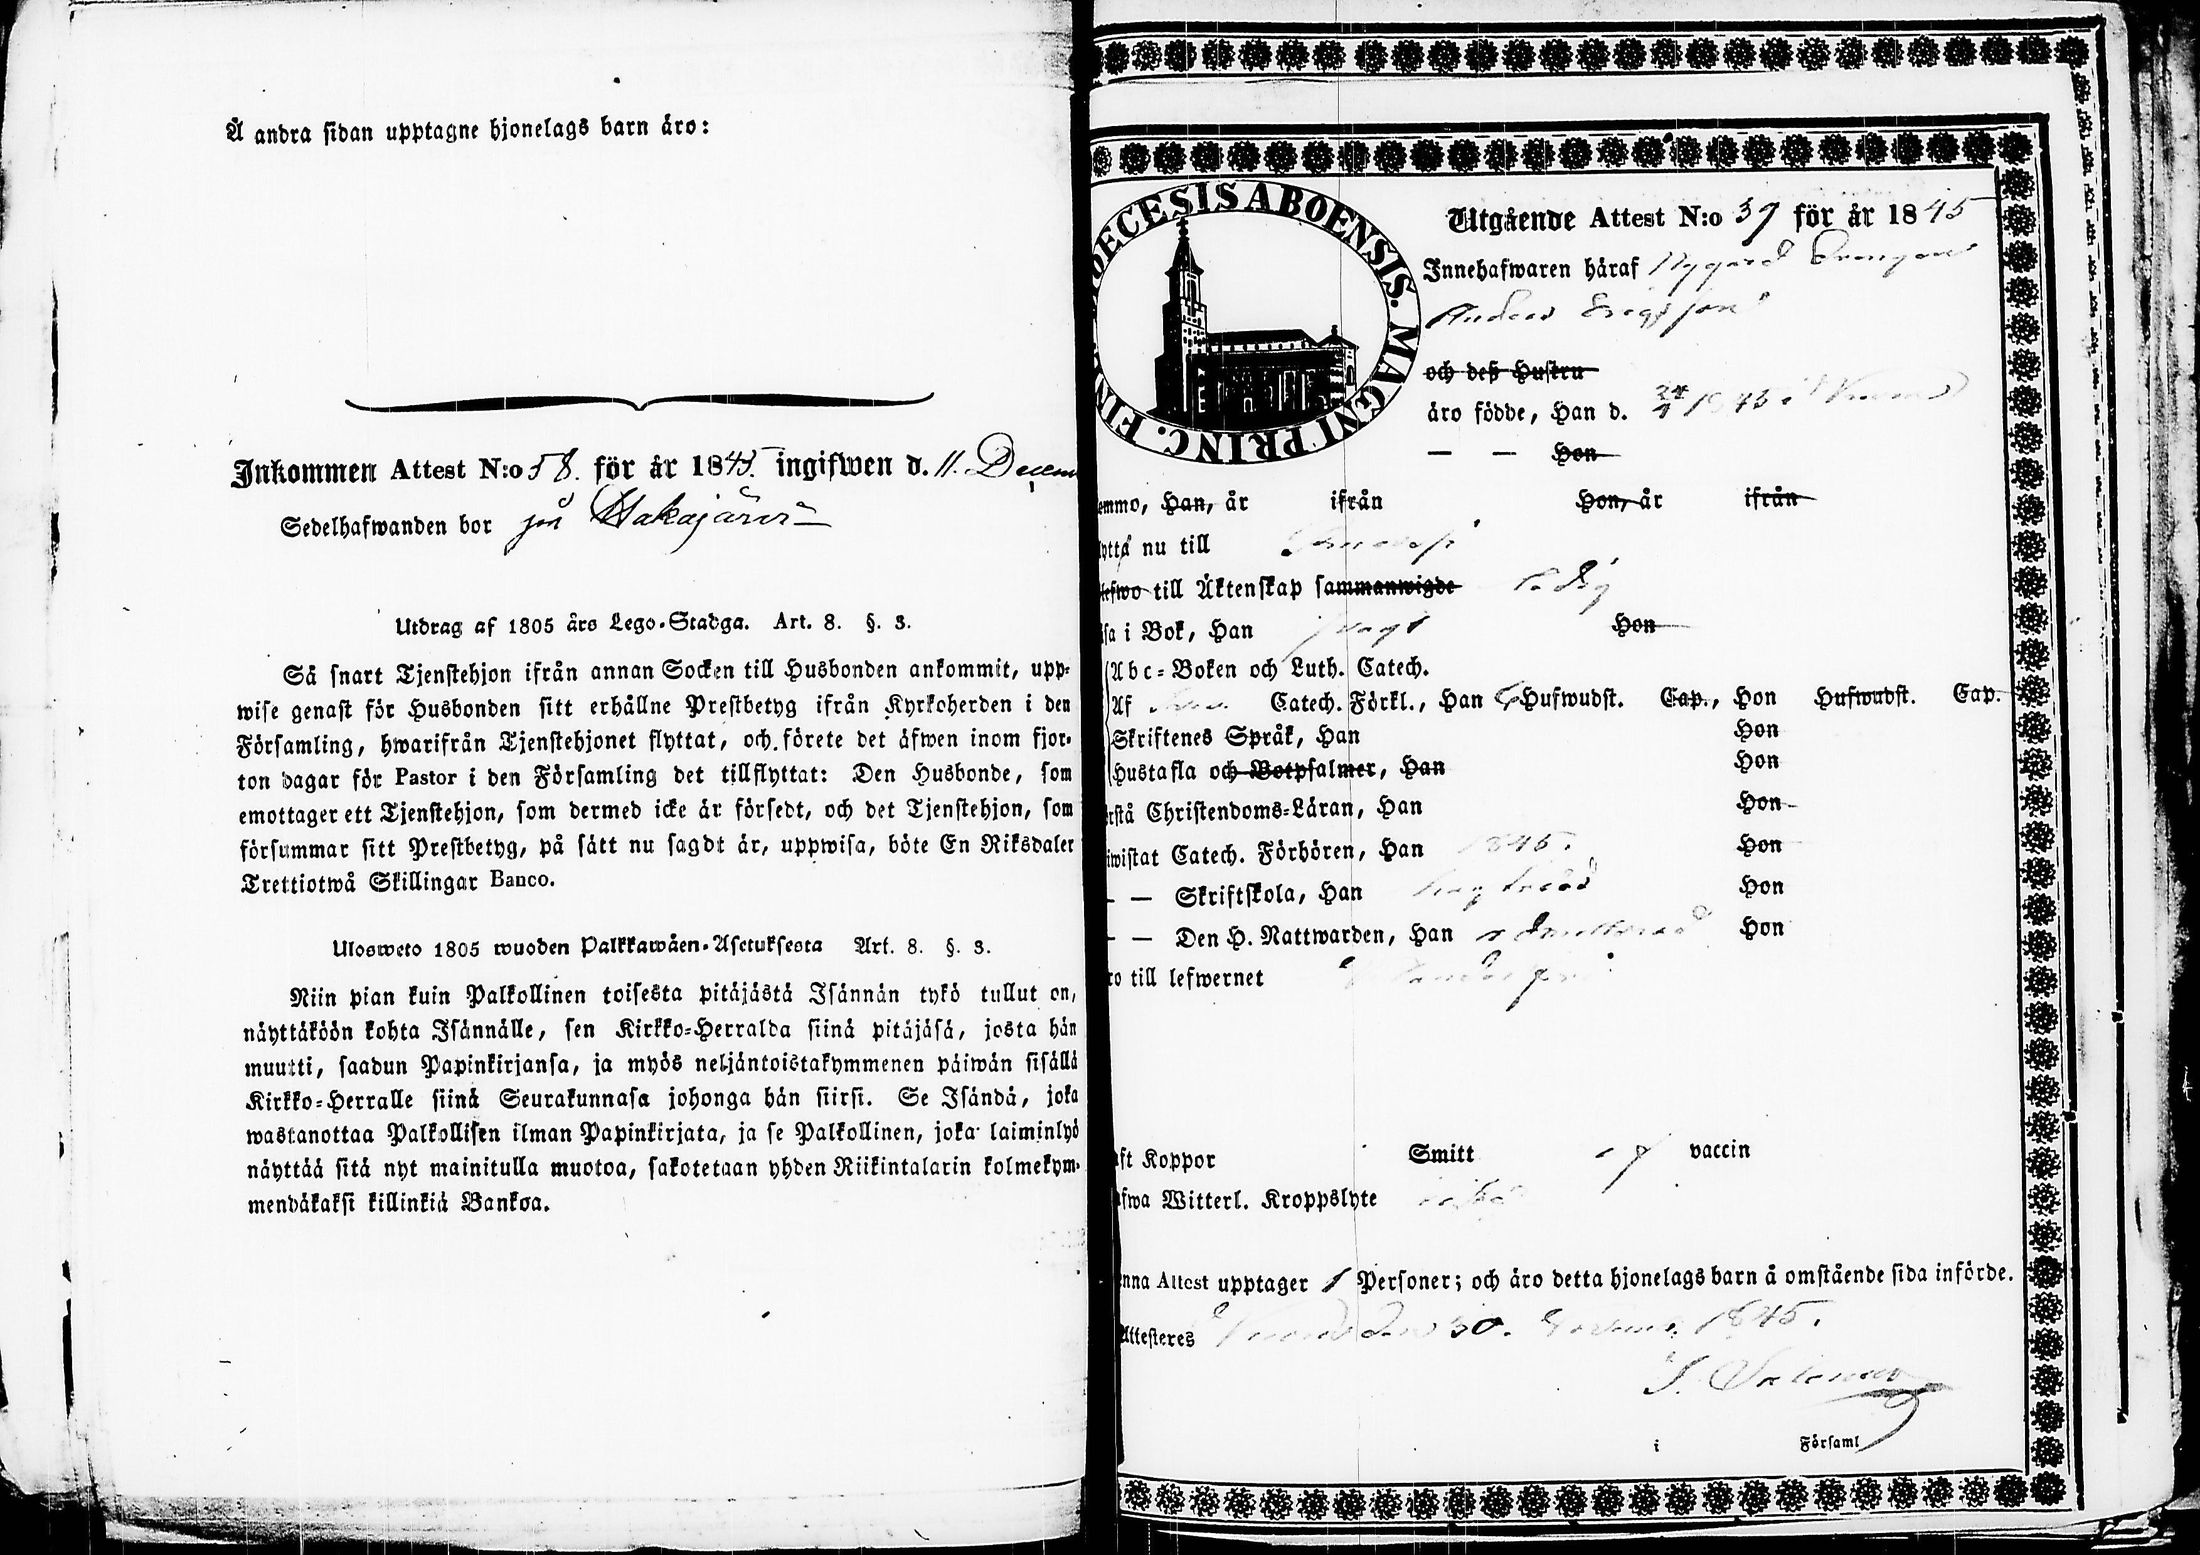 Å andra sidan upptagne hjonelags barn äro:
Inkommen Attest N:o 58. för år 1845. ingifwen d. 11. Decem
Sedelhafwanden bor på Hakajärvi
Utdrag af 1805 års Lego-Stadga. Art. 8. §. 3.
Så snart Tjenstehjon ifrån annan Socken till Husbonden ankommit, upp-
wise genast för Husbonden sitt erhållne Prestbetyg ifrån Kyrkoherden i den
Församling, hwarifrån Tjenstehjonet flyttat, och förete det äfwen inom fjor-
ton dagar för Pastor i den Församling det tillflyttat: Den Husbonde, som
emottager ett Tjenstehjon, som dermed icke är försedt, och det Tjenstehjon, som
försummar sitt Prestbetyg, på sätt nu sagdt är, uppwisa, böte En Riksdaler
Trettiotwå Skillingar Banco.
Ulosweto 1805 wuoden Palkkawäen-Asetuksesta Art. 8. §. 3.
Niin pian kuin Palkollinen toisesta pitäjästä Isännän tykö tullut on,
näyttäköön kohta Isännälle, sen Kirkko-Herralda siinä pitäjäsä, josta hän
muutti, saadun Papinkirjansa, ja myös neljäntoistakymmenen päiwän sisällä
Kirkko-Herralle siinä Seurakunnasa johonga hän siirsi. Se Isändä, joka
wastanottaa Palkollisen ilman Papinkirjata, ja se Palkollinen, joka laiminlyö
näyttää sitä nyt mainitulla muotoa, sakotetaan yhden Riikintalarin kolmekym-
mendäkaksi killinkiä Bankoa.
DIOECESIS ABOENSIS. MAGNI PRINC. FIN
Utgående Attest N:o 39 för år 1845
Innehafwaren häraf Nygård
Anders Ericsson
och deß Hustru
äro födde, Han d. 24
— — Hon
emmo, Han, år ifrån Hon, år ifrån
ytta nu till
lefwo till Äktenskap sammanwigde ledig
äsa i Bok, Han swagt Hon
Abc-Boken och Luth. Catech.
Af Catech. Förkl., Han 6 Hufwudst. Cap., Hon Hufwudst. Cap.
Skriftenes Språk, Han Hon
Hustafla och Botpsalmer, Han Hon
rstå Christendoms-Läran, Han Hon
iwistat Catech. Förhören, Han 1845. Hon
— — Skriftskola, Han Hon
— — Den H. Nattwarden, Han Hon
ro till lefwernet
aft Koppor Smitt vaccin
afwa Witterl. Kroppslyte
enna Attest upptager 1 Personer; och äro detta hjonelags barn å omstående sida införde.
Attesteres den 30. 1845.
i Församl